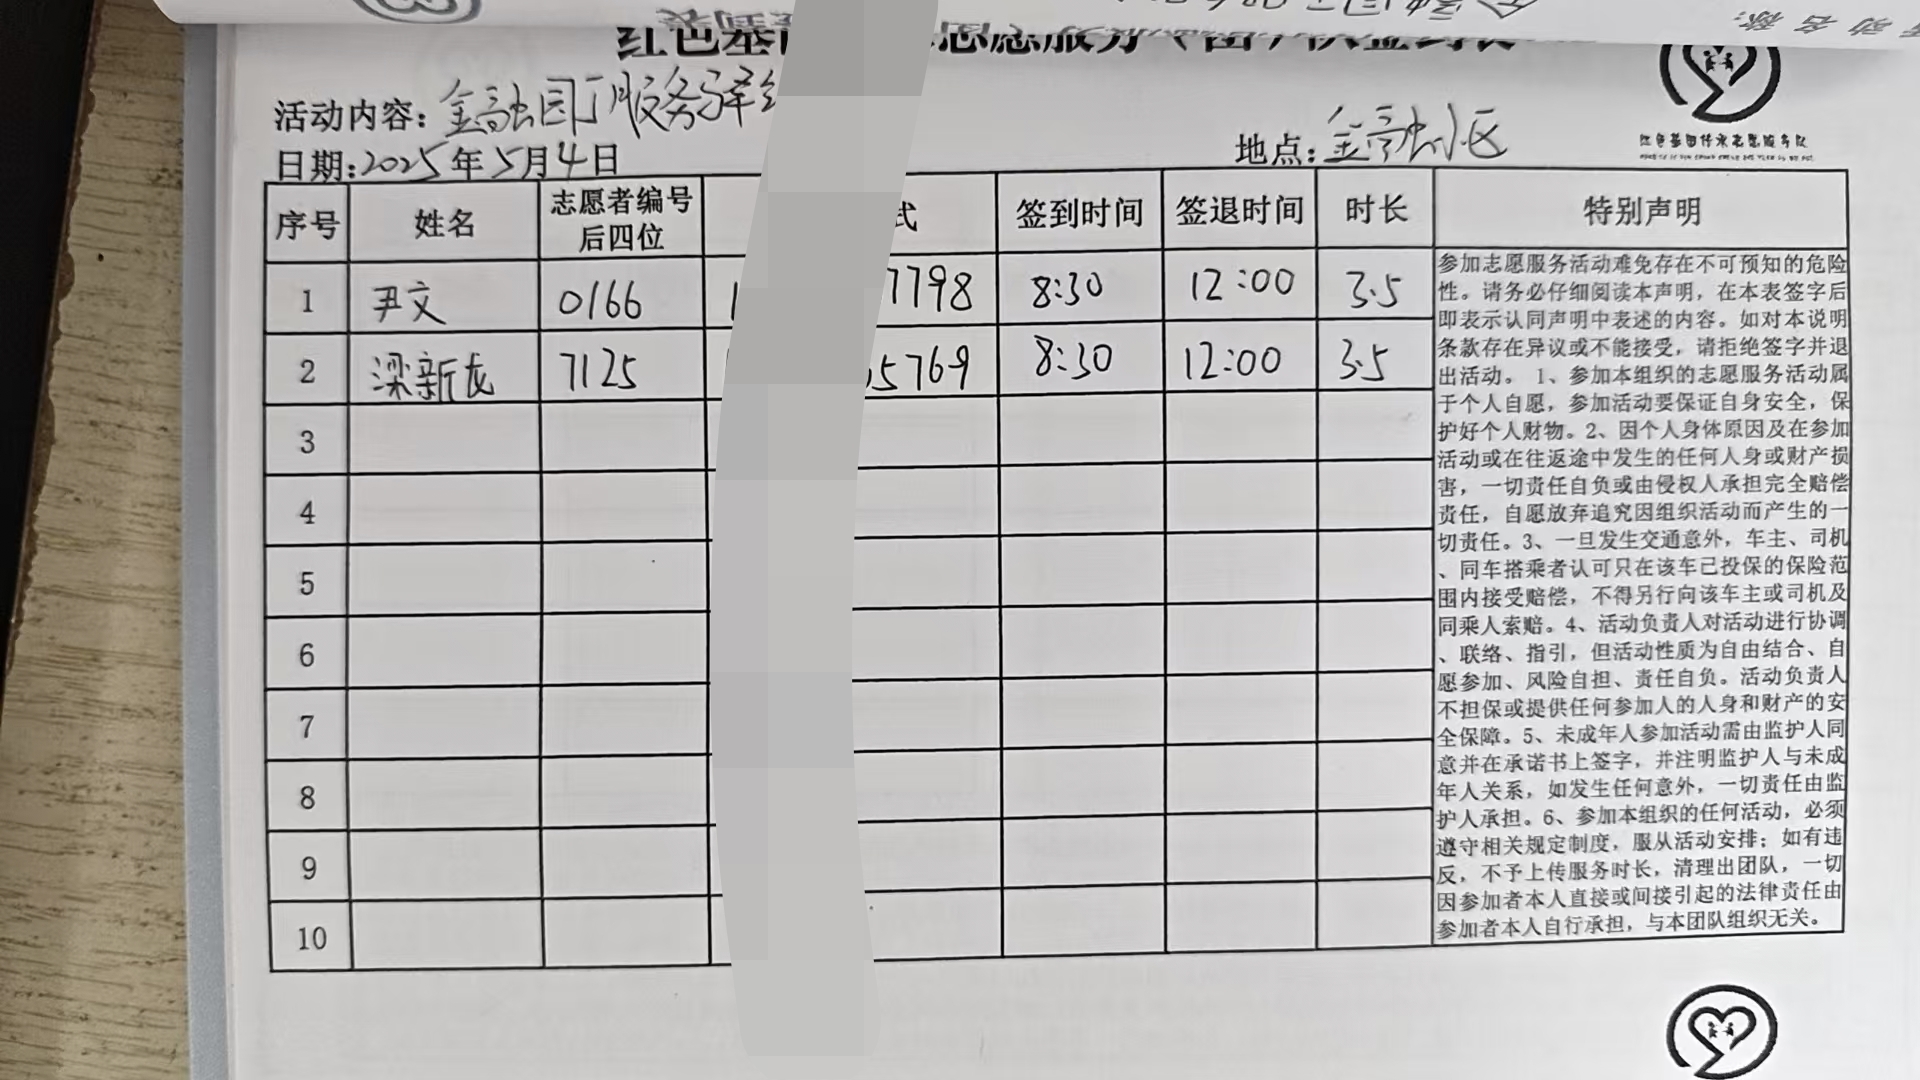 红色基
活动内容：金融园丁服务驿
日期：2025年5月4日
地点：金融小区
红色基因传承志愿服务队
序号 姓名 志愿者编号后四位 式 签到时间 签退时间 时长 特别声明
1 尹文 0166 1 7798 8:30 12:00 3.5
2 梁新龙 7125 5769 8:30 12:00 3.5
3
4
5
6
7
8
9
10
参加志愿服务活动难免存在不可预知的危险
性。请务必仔细阅读本声明，在本表签字后
即表示认同声明中表述的内容。如对本说明
条款存在异议或不能接受，请拒绝签字并退
出活动。 1、参加本组织的志愿服务活动属
于个人自愿，参加活动要保证自身安全，保
护好个人财物。2、因个人身体原因及在参加
活动或在往返途中发生的任何人身或财产损
害，一切责任自负或由侵权人承担完全赔偿
责任，自愿放弃追究因组织活动而产生的一
切责任。3、一旦发生交通意外，车主、司机
、同车搭乘者认可只在该车已投保的保险范
围内接受赔偿，不得另行向该车主或司机及
同乘人索赔。4、活动负责人对活动进行协调
、联络、指引，但活动性质为自由结合、自
愿参加、风险自担、责任自负。活动负责人
不担保或提供任何参加人的人身和财产的安
全保障。5、未成年人参加活动需由监护人同
意并在承诺书上签字，并注明监护人与未成
年人关系，如发生任何意外，一切责任由监
护人承担。6、参加本组织的任何活动，必须
遵守相关规定制度，服从活动安排；如有违
反，不予上传服务时长，清理出团队，一切
因参加者本人直接或间接引起的法律责任由
参加者本人自行承担，与本团队组织无关。